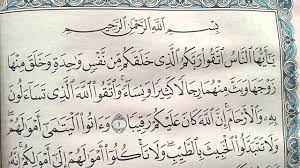 بِسْمِ اللَّهِ الرَّحْمَٰنِ الرَّحِيمِ
يَا أَيُّهَا النَّاسُ اتَّقُوا رَبَّكُمُ الَّذِي خَلَقَكُم مِّن نَّفْسٍ وَاحِدَةٍ وَخَلَقَ مِنْهَا
زَوْجَهَا وَبَثَّ مِنْهُمَا رِجَالًا كَثِيرًا وَنِسَاءً ۚ وَاتَّقُوا اللَّهَ الَّذِي تَسَاءَلُونَ
بِهِ وَالْأَرْحَامَ ۚ إِنَّ اللَّهَ كَانَ عَلَيْكُمْ رَقِيبًا ۝١ وَآتُوا الْيَتَامَىٰ أَمْوَالَهُمْ ۖ
وَلَا تَتَبَدَّلُوا الْخَبِيثَ بِالطَّيِّبِ ۖ وَلَا تَأْكُلُوا أَمْوَالَهُمْ إِلَىٰ